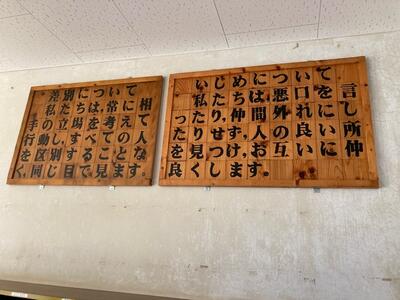 差別について
私たちは常に相
手の立場を考えて
行動し、すべての人
を区別することな
く、同じ目で見ます。
いじめについて
私たちは悪口を言
ったり仲間外れにし
たりせず、人の良い所
を見つけ、お互いに仲
良くします。